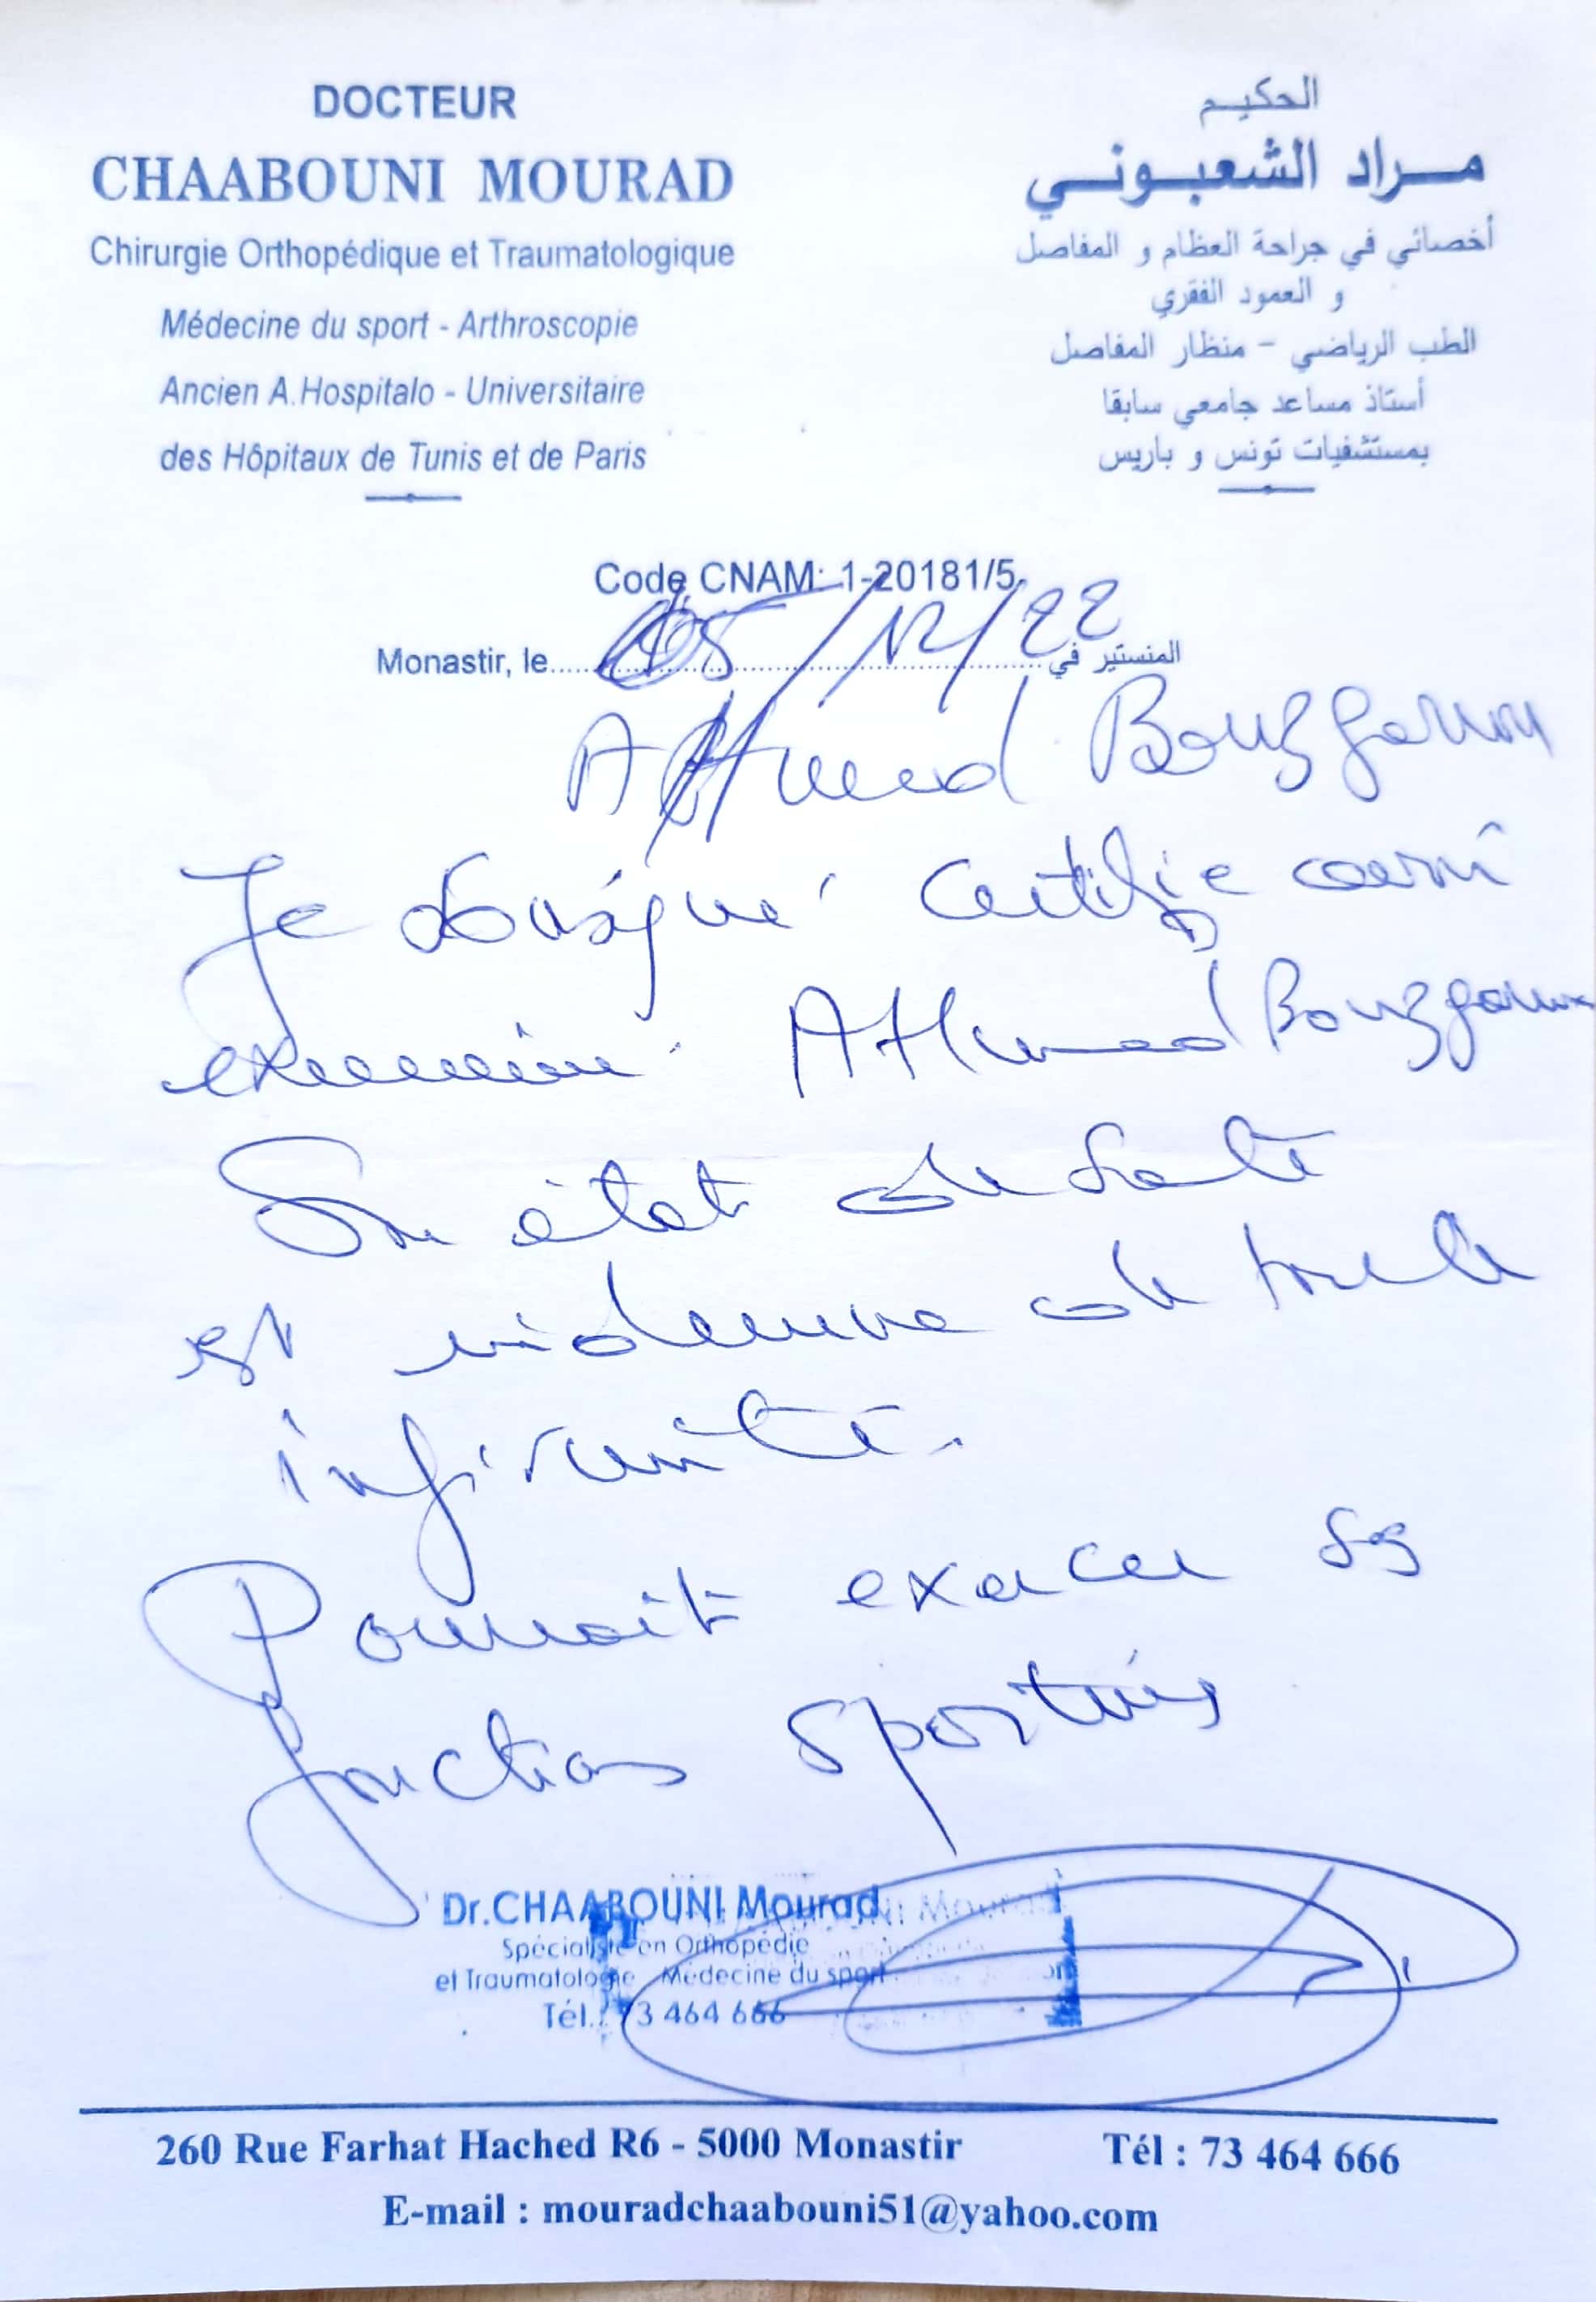 DOCTEUR
CHAABOUNI MOURAD
Chirurgie Orthopédique et Traumatologique
Médecine du sport - Arthroscopie
Ancien A.Hospitalo - Universitaire
des Hôpitaux de Tunis et de Paris
الحكيم
مراد الشعبوني
أخصائي في جراحة العظام و المفاصل
و العمود الفقري
الطب الرياضي - منظار المفاصل
أستاذ مساعد جامعي سابقا
بمستشفيات تونس و باريس
Code CNAM: 1-20181/5
Monastir, le 05/12/22 المنستير في
Ahmed Bouzgarrou
Je soussigné certifie avoir
examiné Ahmed Bouzgarrou
Son état de santé
est indemne de toute
infirmité.
Pourrait exercer ses
fonctions sportives
Dr.CHAABOUNI Mourad
Spécialiste en Orthopédie
et Traumatologie Médecine du sport
Tél.: 73 464 666
260 Rue Farhat Hached R6 - 5000 Monastir
Tél : 73 464 666
E-mail : mouradchaabouni51@yahoo.com